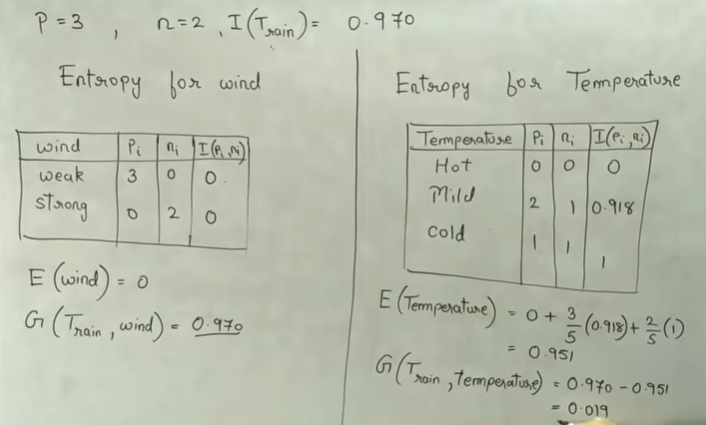 P = 3 , n = 2 , I(Train) = 0.970
Entropy for wind
wind Pi ni I(Pi,ni)
weak 3 0 0
strong 0 2 0
E(wind) = 0
G(Train, wind) = 0.970
Entropy for Temperature
Temperature Pi ni I(Pi,ni)
Hot 0 0 0
Mild 2 1 0.918
Cold 1 1 1
E(Temperature) = 0 + 3/5 (0.918) + 2/5 (1)
= 0.951
G(Train, temperature) = 0.970 - 0.951
= 0.019